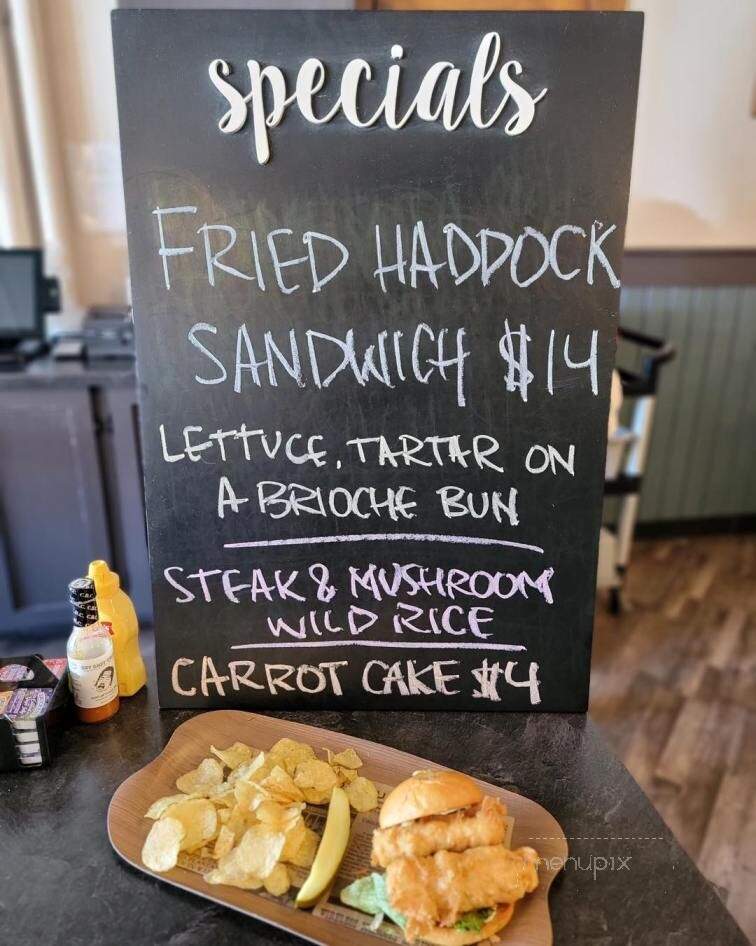 specials
FRIED HADDOCK
SANDWICH $14
LETTUCE, TARTAR ON
A BRIOCHE BUN
STEAK & MUSHROOM
WILD RICE
CARROT CAKE $4
menupix